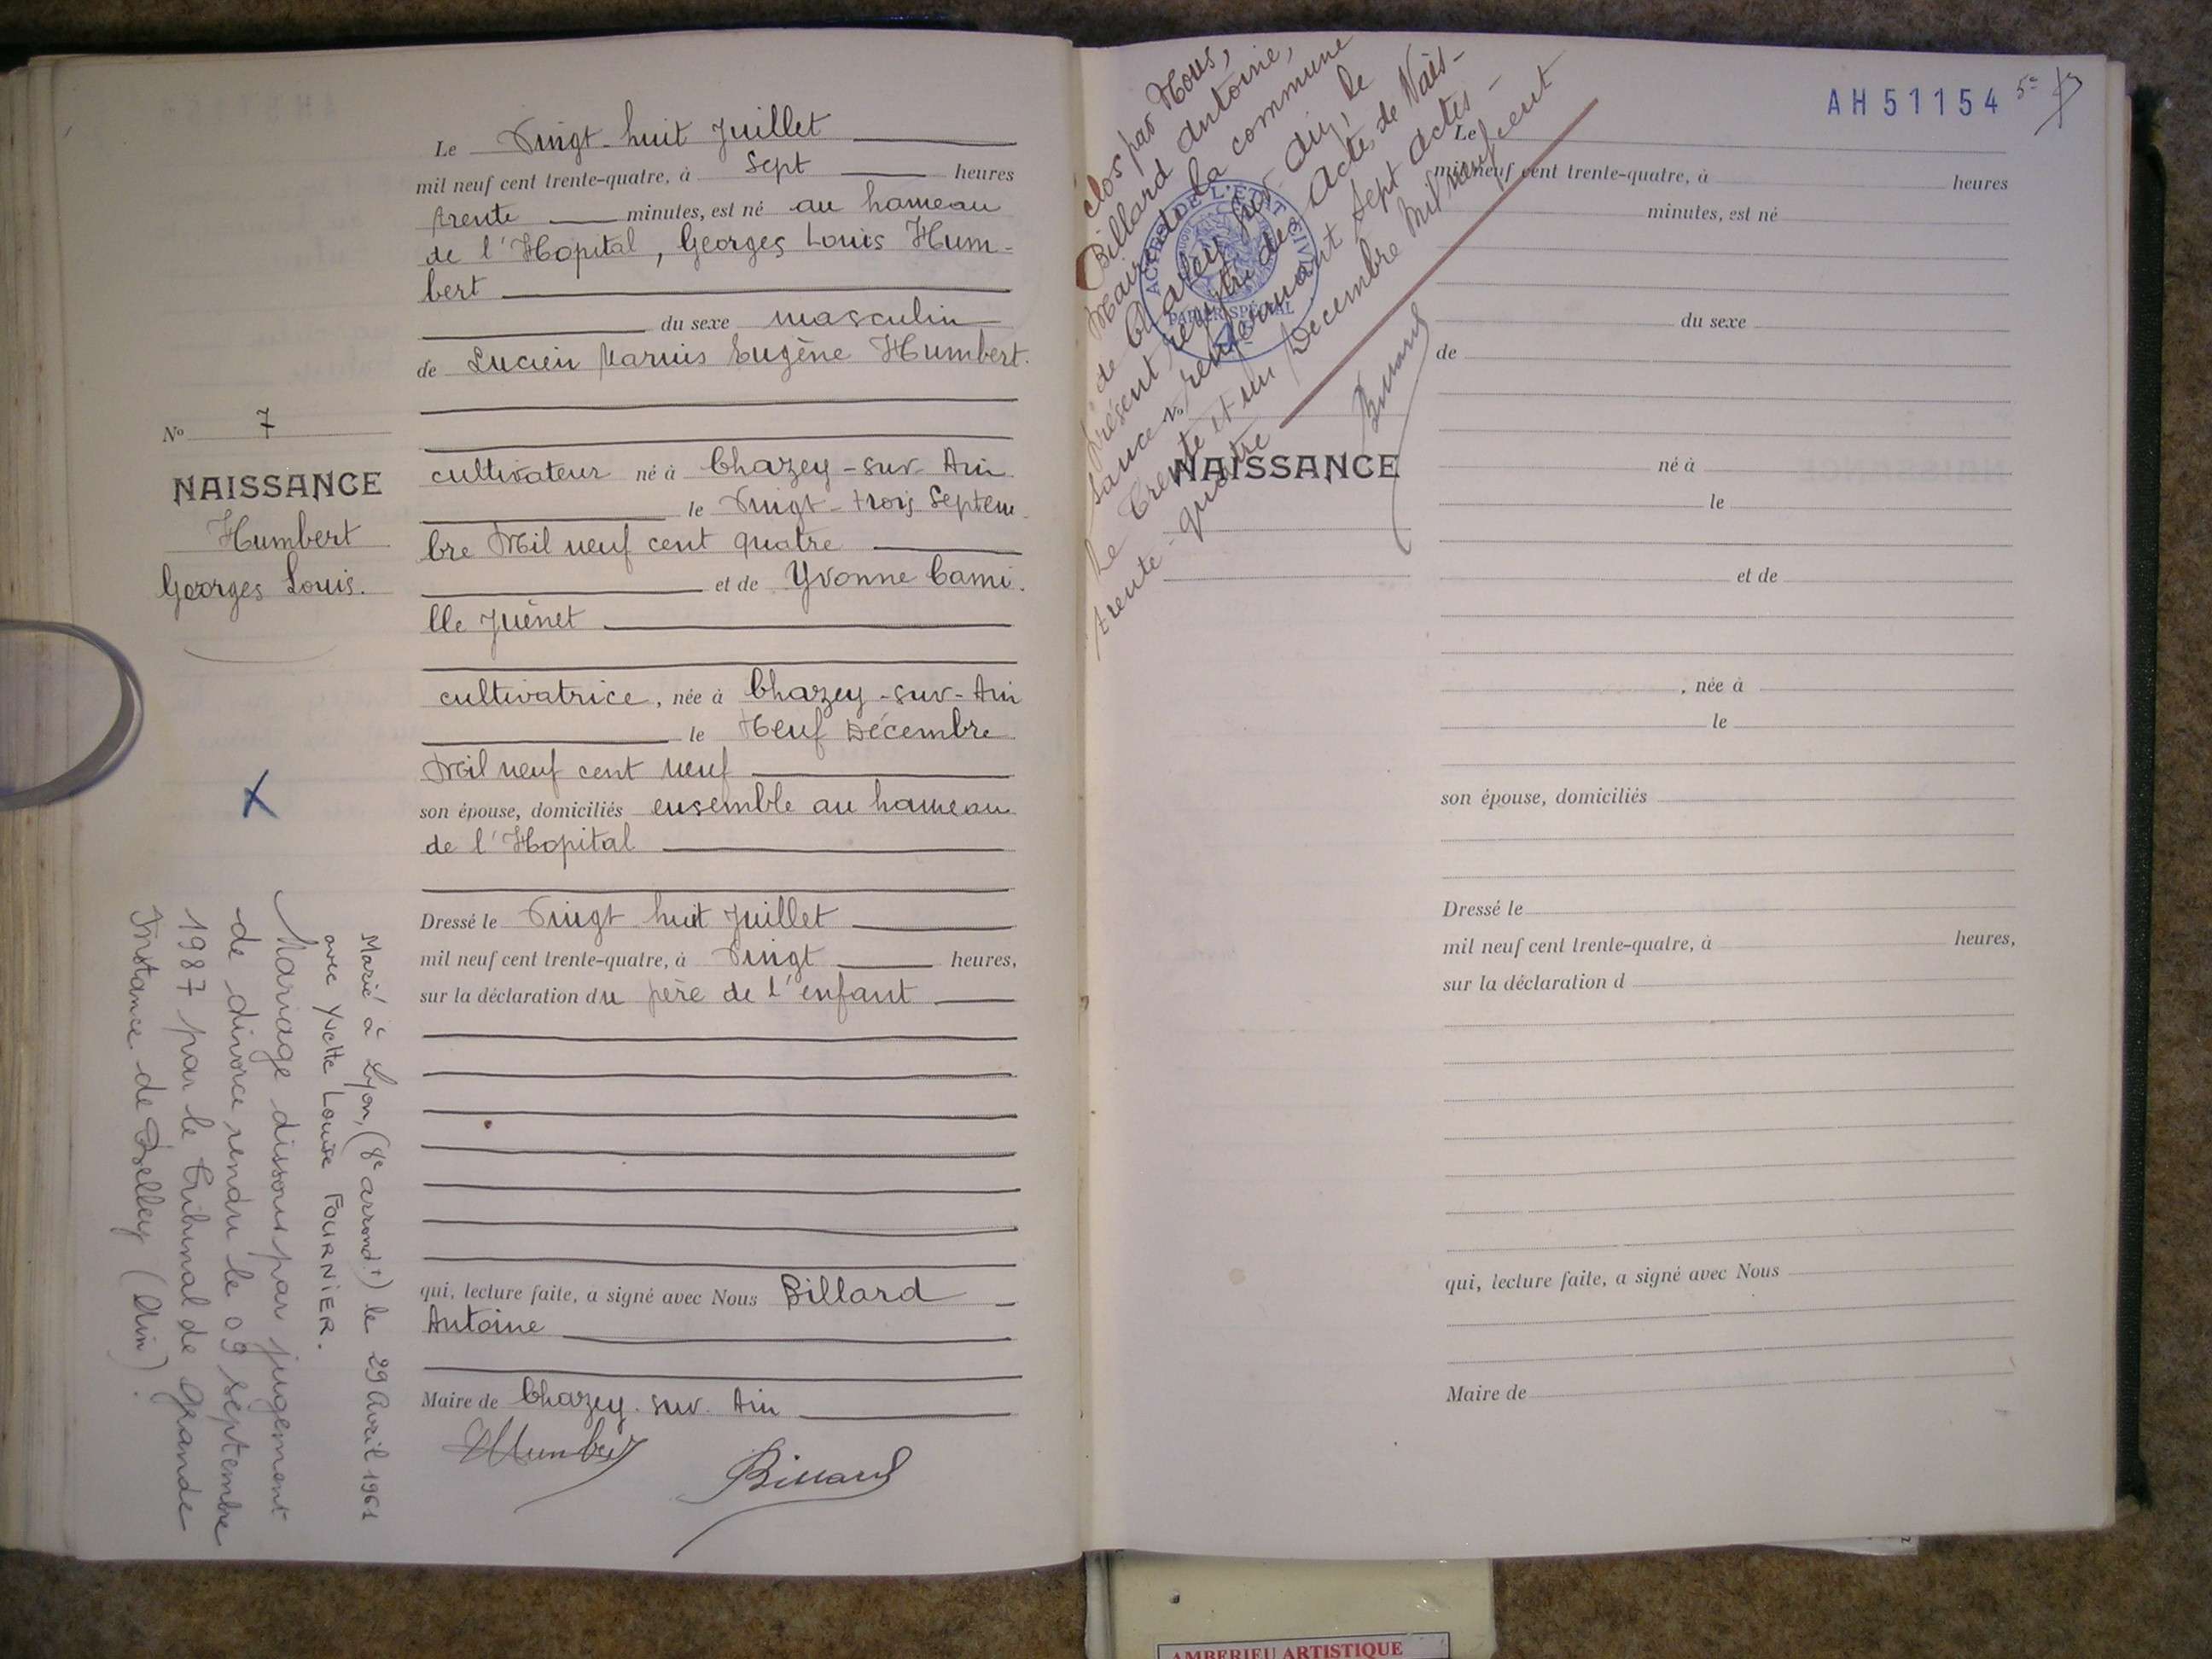 Le Vingt-huit Juillet
mil neuf cent trente-quatre, à Sept heures
trente minutes, est né au hameau
de l'Hopital, Georges Louis Hum-
bert
du sexe masculin
de Lucien Marius Eugène Humbert.
cultivateur né à Chazey-sur-Ain
le Vingt-trois Septem
bre Mil neuf cent quatre
et de Yvonne Cami.
lle Juénet
cultivatrice, née à Chazey-sur-Ain
le Neuf Décembre
Mil neuf cent neuf
son épouse, domiciliés ensemble au hameau
de l'Hopital
Dressé le Vingt huit Juillet
mil neuf cent trente-quatre, à Vingt heures,
sur la déclaration du père de l'enfant
qui, lecture faite, a signé avec Nous Billard
Antoine
Maire de Chazey-sur-Ain
Humbert
Billard
No 7
NAISSANCE
Humbert
Georges Louis.
X
Marié à Lyon, (8e arrondt) le 29 Avril 1961
avec Yvette Louise FOURNIER.
Mariage dissous par jugement
de divorce rendu le 09 Septembre
1987 par le Tribunal de Grande
Instance de Belley (Ain).
Clos par Nous,
Billard Antoine,
Maire de la commune
de Chazey-sur-Ain, le
présent registre des Actes de Nais-
sance renfermant Sept actes-
Le Trente et un Décembre Mil neuf cent
trente-quatre
Billard
ACTES DE L'ETAT CIVIL
PAPIER SPÉCIAL
No
NAISSANCE
AH51154
5e
Le
mil neuf cent trente-quatre, à heures
minutes, est né
du sexe
de
né à
le
et de
, née à
le
son épouse, domiciliés
Dressé le
mil neuf cent trente-quatre, à heures,
sur la déclaration d
qui, lecture faite, a signé avec Nous
Maire de
AMBERIEU ARTISTIQUE